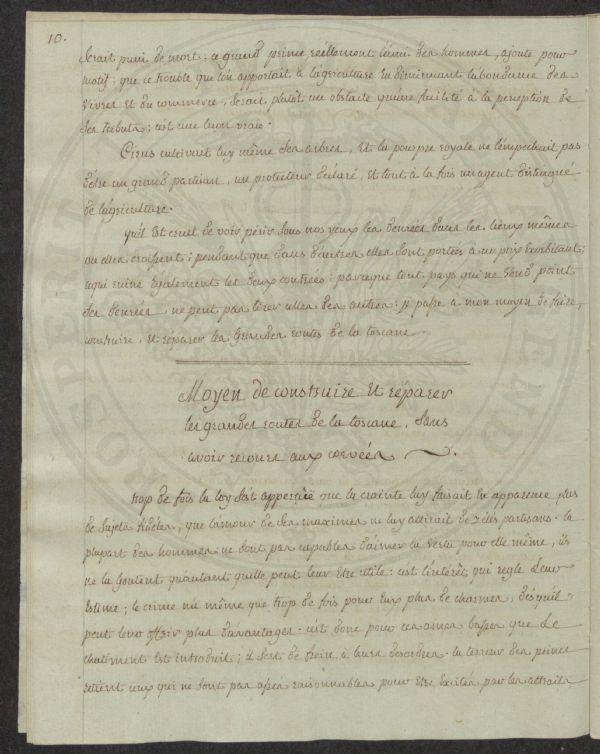 10.
serait puni de mort: ce grand prince réellement l'ami des hommes, ajoute pour
motif; que ce trouble que l'on apportait à l'agriculture en diminuant l'abondance des
vivres et du commerce, serait plutôt un obstacle qu'une facilité à la perception de
ses tributs; c'est une leçon vraie.
Cirus cultivait luy même ses arbres, et la pourpre royale ne l'empechait pas
d'être un grand partisan, un protecteur déclaré, et tout à la fois un agent distingué
de l'agriculture.
qu'il est cruel de voir périr sous nos yeux les denrées dans les lieux mêmes
ou elles croissent; pendant que dans d'autres elles sont portées a un prix exorbitant;
ce qui ruine également les deux contrées: parceque tout pays qui ne vend point
ses denrées ne peut pas tirer celles des autres; je passe a mon moyen de faire,
construire, et réparer les grandes routes de la toscane.
Moyen de construire et réparer
les grandes routes de la toscane, sans
avoir recours aux corvées.
trop de fois la loy s'est apperçüe que la crainte luy faisait en apparence plus
de sujets fideles, que l'amour de ses maximes ne luy attirait de zélés partisans. la
plupart des hommes ne sont pas capables d'aimer la vertu pour elle même, ils
ne la goutent qu'autant qu'elle peut leur etre utile: c'est l'intérêt qui regle leur
estime; le crime même que trop de fois pour eux plus de charmes, dès qu'il
peut leur offrir plus d'avantages. c'est donc pour ces ames basses que le
chatiment est introduit; il sert de frein à leurs desordres. la terreur des peines
retient ceux qui ne sont pas assés raisonnables pour etre excités par les attraits